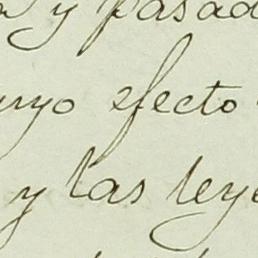 y pasad
uyo efecto
y las leye